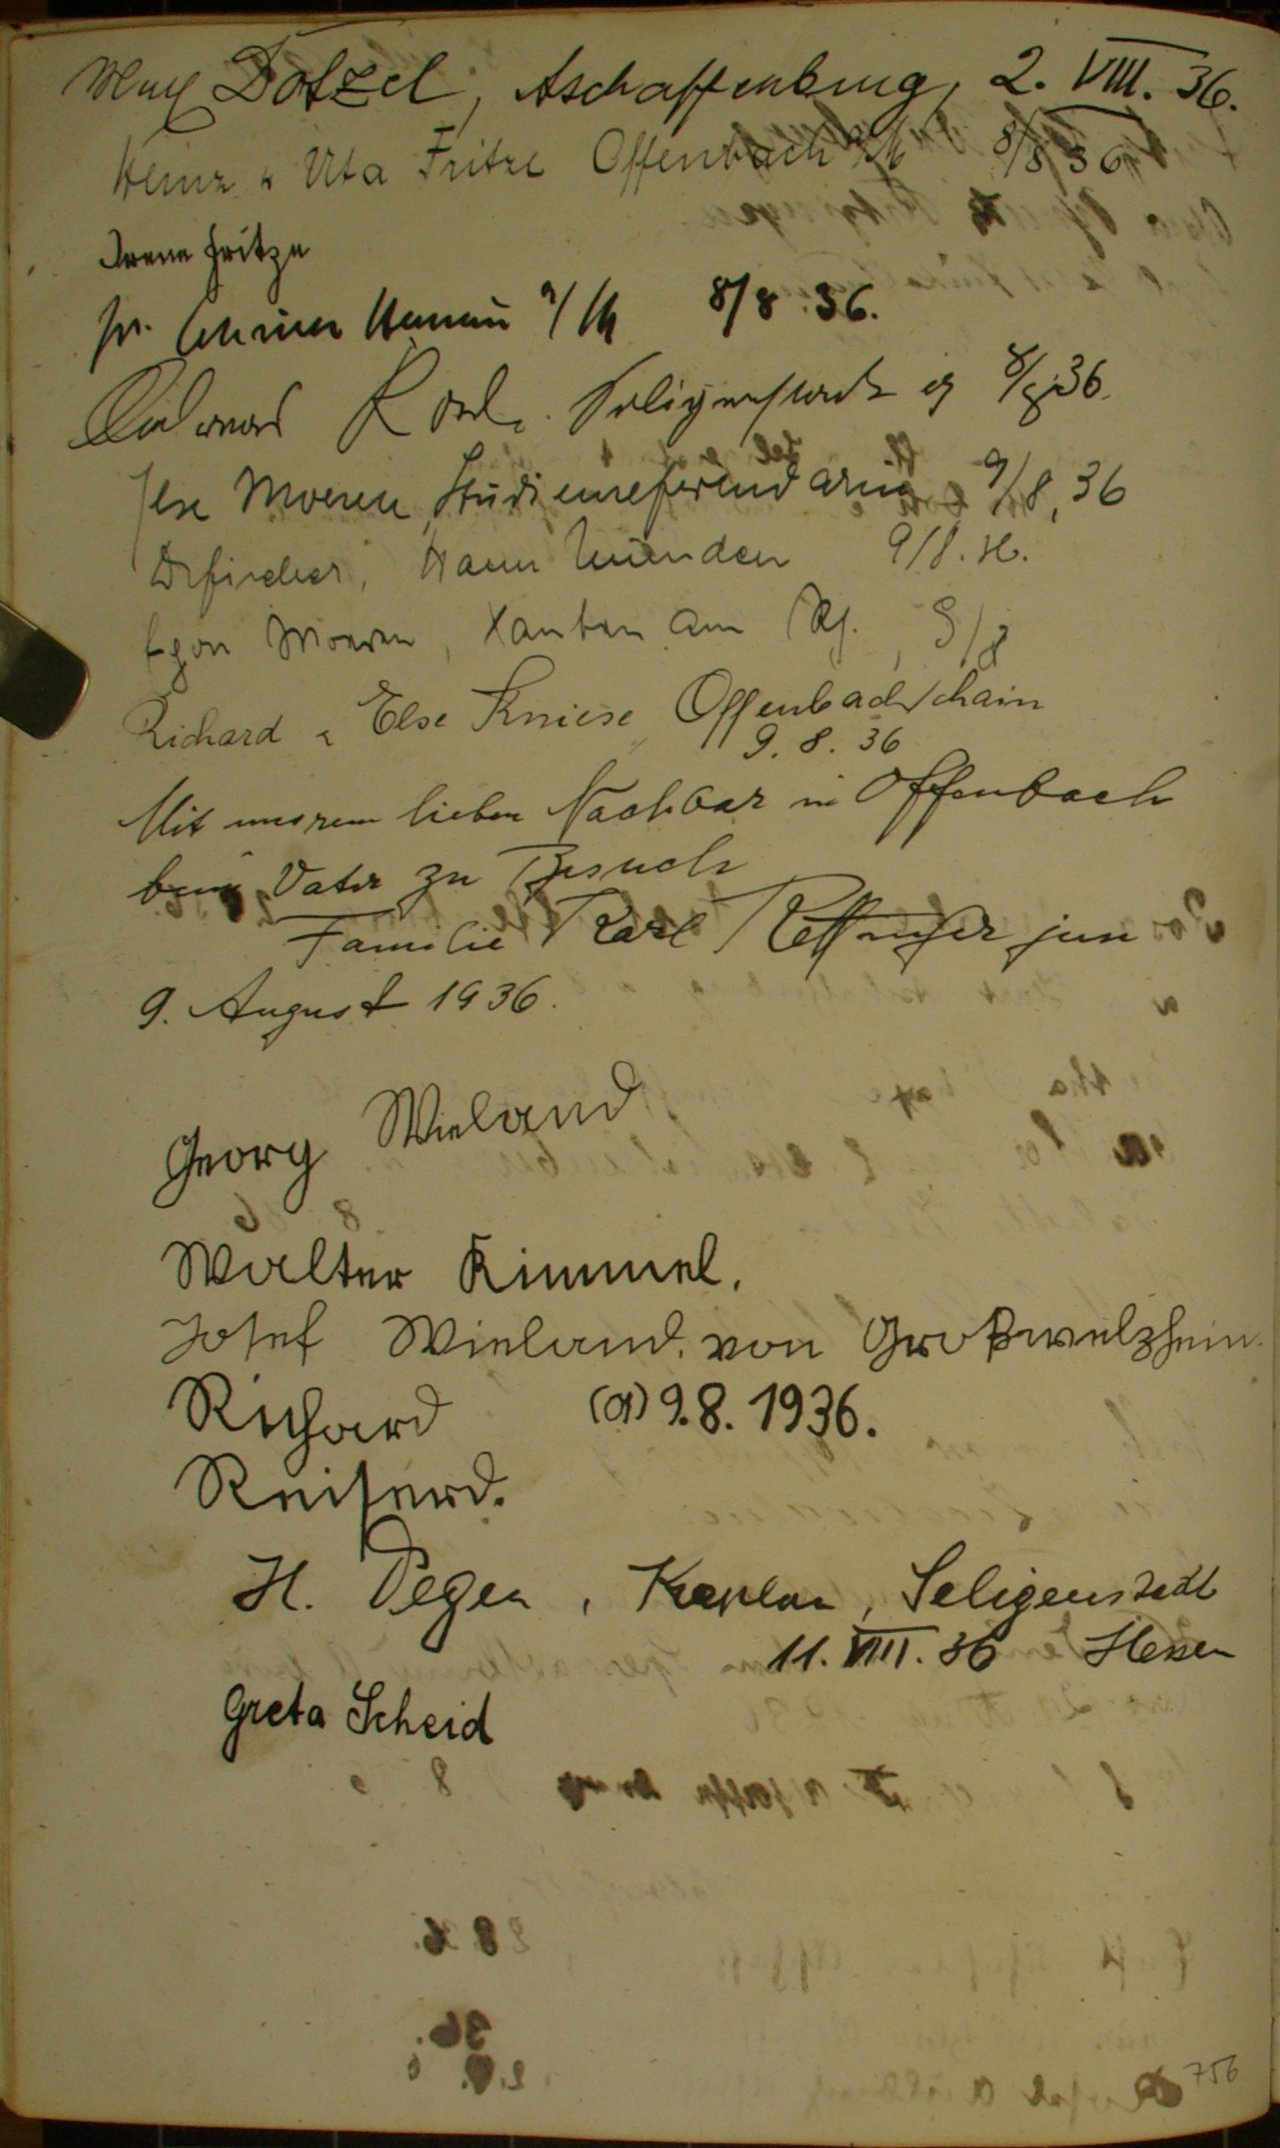 Max Dotzel, Aschaffenburg, 2. VIII. 36.
Heinz u Uta Fritze Offenbach a/M 8/8 36
Irene Fritze
Hanau a/M 8/8. 36.
Seligenstadt 8/8 36.
Ilse Moeren, Studienreferendarin 9/8. 36
Hann Münden 9/8. 36.
Egon Moeren, Xanten am Rh., 9/8
Richard u Else Kniese Offenbach/Main
9. 8. 36
Mit unsrem lieben Nachbar in Offenbach
beim Vater zu Besuch
Familie Karl jun
9. August 1936.
Georg Wieland
Walter Kimmel.
Josef Wieland. von Großwelzheim.
Richard (a) 9.8. 1936.
Reisert.
H. Degen, Kaplan, Seligenstadt
11. VIII. 36 Hessen
Greta Scheid
756